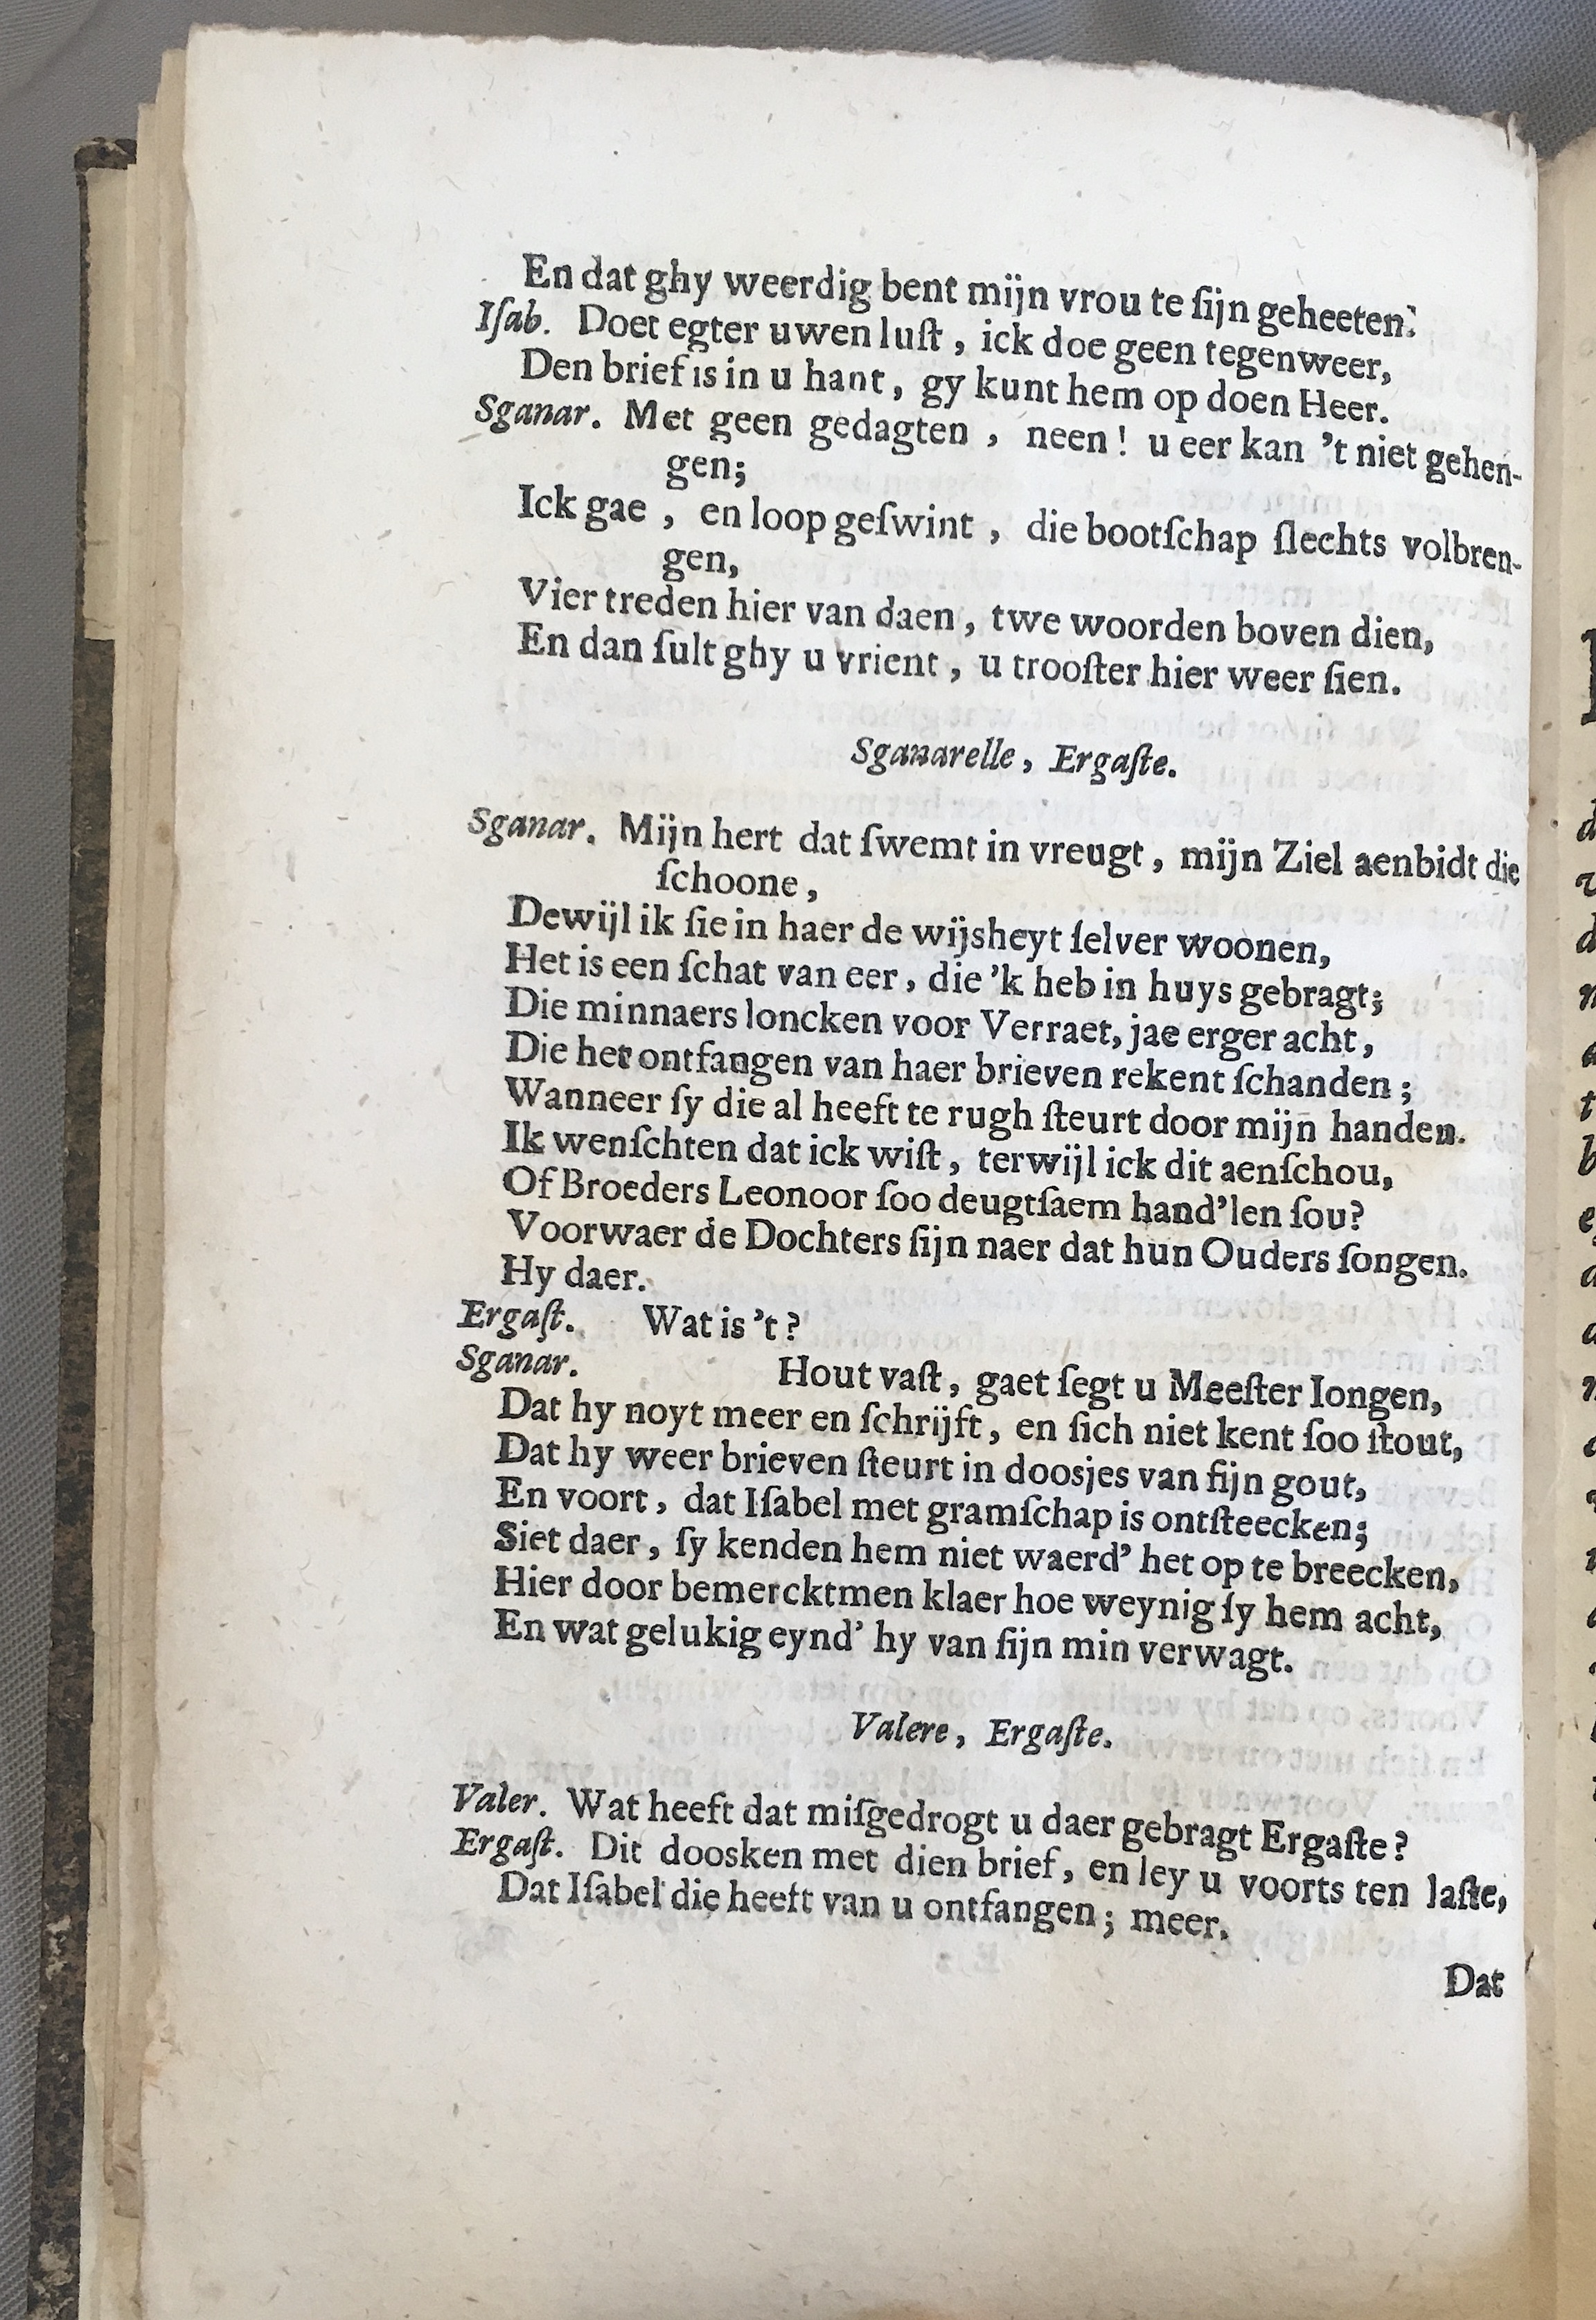 En dat ghy weerdig bent mijn vrou te ſijn geheeten.
Iſab. Doet egter uwen luſt, ick doe geen tegenweer,
Den brief is in u hant, gy kunt hem op doen Heer.
Sganar. Met geen gedagten, neen! u eer kan 't niet gehen-
gen;
Ick gae, en loop geſwint, die bootſchap ſlechts volbren-
gen,
Vier treden hier van daen, twe woorden boven dien,
En dan ſult ghy u vrient, u trooſter hier weer ſien.
Sganarelle, Ergaſte.
Sganar. Mijn hert dat ſwemt in vreugt, mijn Ziel aenbidt die
ſchoone,
Dewijl ik ſie in haer de wijsheyt ſelver woonen,
Het is een ſchat van eer, die 'k heb in huys gebragt;
Die minnaers loncken voor Verraet, jae erger acht,
Die het ontfangen van haer brieven rekent ſchanden;
Wanneer ſy die al heeft te rugh ſteurt door mijn handen.
Ik wenſchten dat ick wiſt, terwijl ick dit aenſchou,
Of Broeders Leonoor ſoo deugtſaem hand'len ſou?
Voorwaer de Dochters ſijn naer dat hun Ouders ſongen.
Hy daer.
Ergaſt. Wat is 't?
Sganar. Hout vaſt, gaet ſegt u Meeſter Iongen,
Dat hy noyt meer en ſchrijft, en ſich niet kent ſoo ſtout,
Dat hy weer brieven ſteurt in doosjes van fijn gout,
En voort, dat Iſabel met gramſchap is ontſteecken;
Siet daer, ſy kenden hem niet waerd' het op te breecken,
Hier door bemercktmen klaer hoe weynig ſy hem acht,
En wat gelukig eynd' hy van ſijn min verwagt.
Valere, Ergaſte.
Valer. Wat heeft dat miſgedrogt u daer gebragt Ergaſte?
Ergaſt. Dit doosken met dien brief, en ley u voorts ten laſte,
Dat Iſabel die heeft van u ontfangen; meer.
Dat